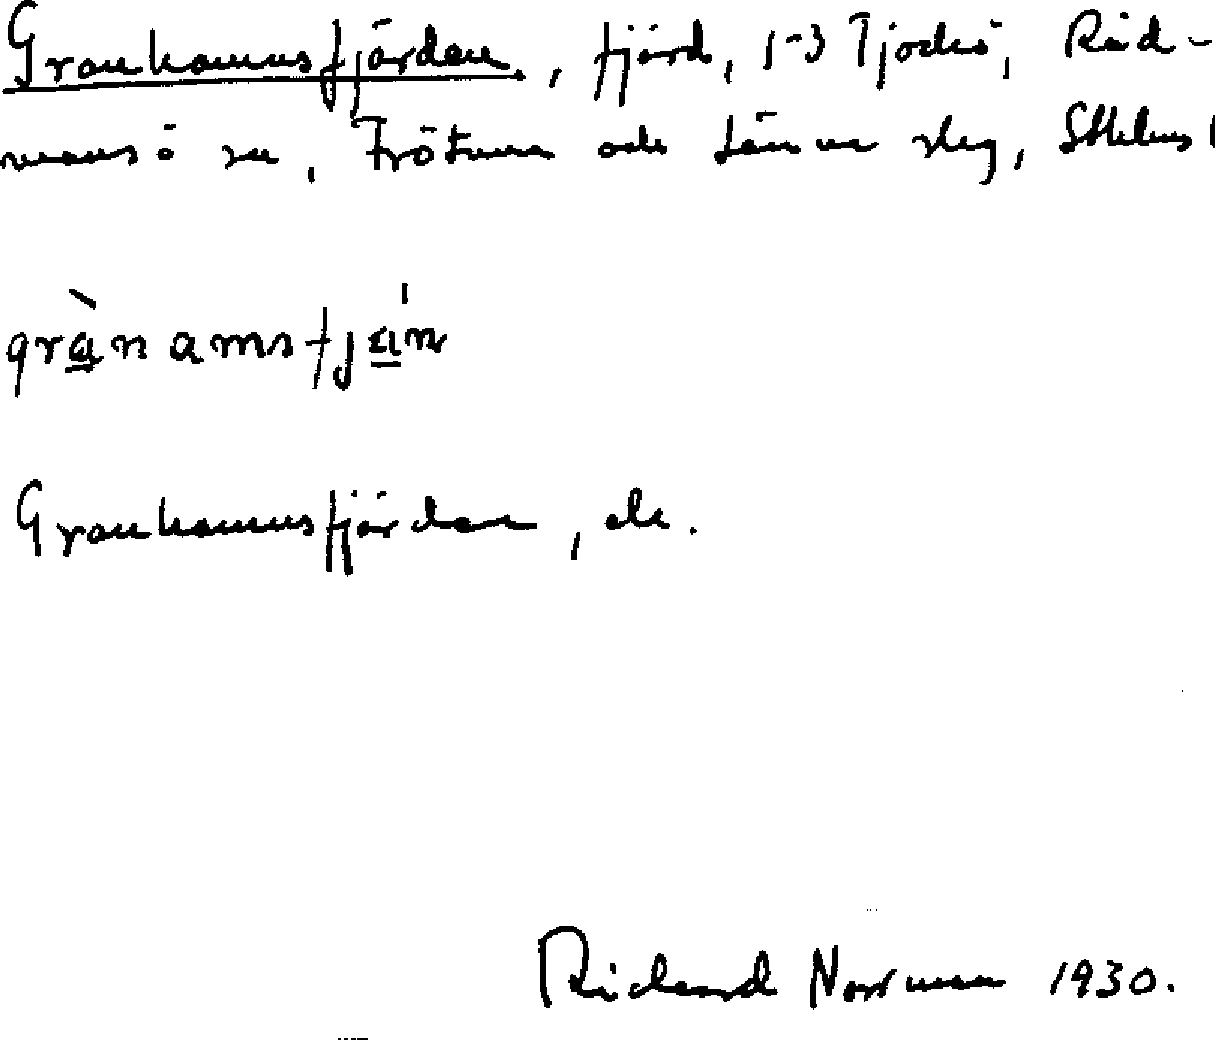 Granhamnsfjärden, fjärd, 1-3 Tjockö, Råd-
mansö sn, Frötuna och Länna skg, Sthlms l
grànamsfján
Granhamnsfjärden, ek.
Rickard Norrman 1930.